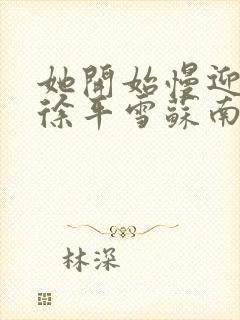 她開始慢迎
徐平雪蘇南
林深